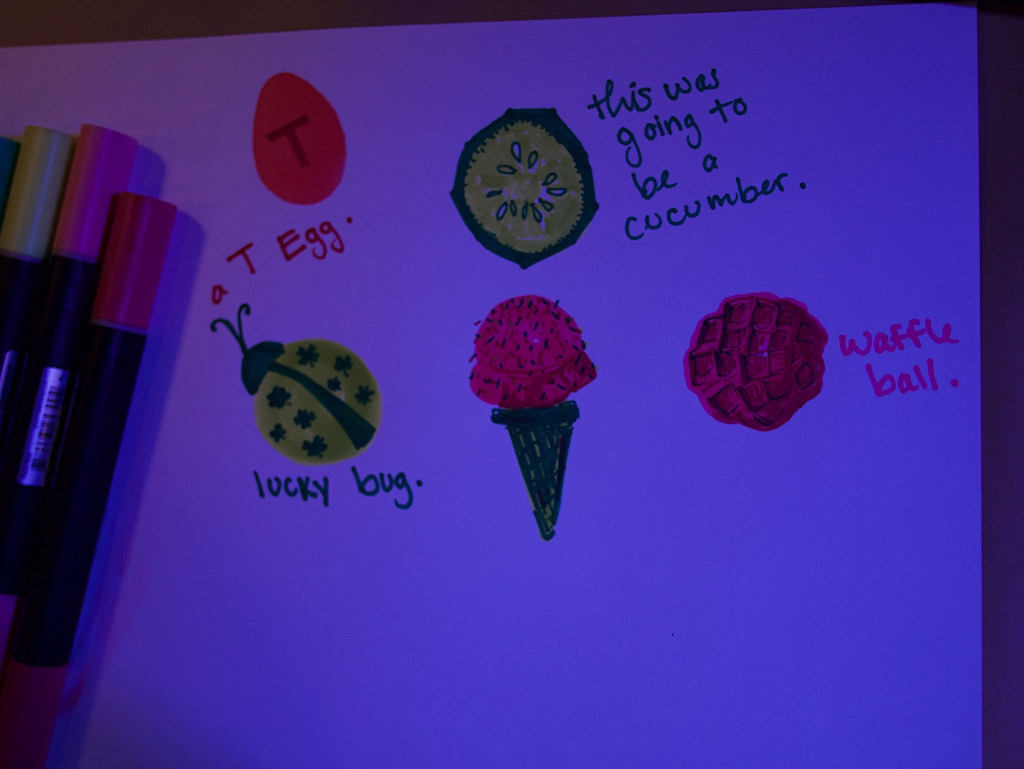 T
a T Egg.
this was
going to
be a
cucumber.
lucky bug.
waffle
ball.